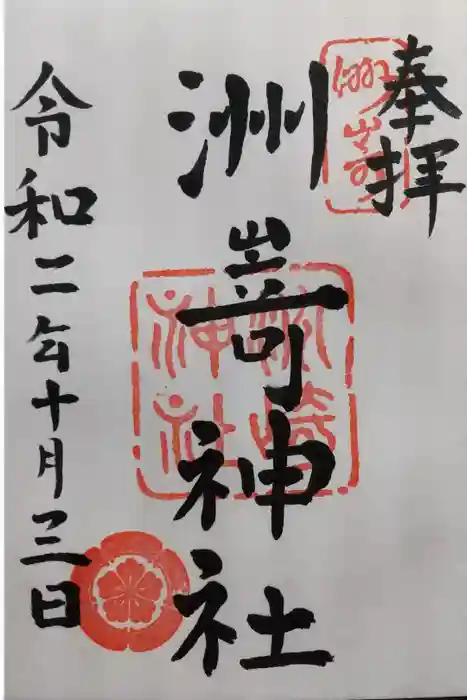 奉拝
洲嵜
洲嵜神社
神社
令和二年十月三日